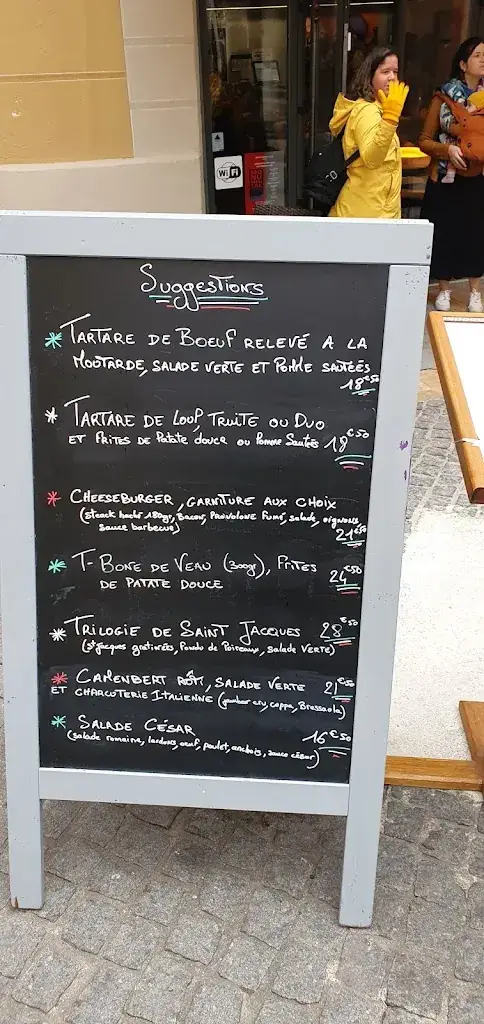 WiFi
Suggestions
* TARTARE DE BOEUF RELEVÉ A LA
MOUTARDE, SALADE VERTE ET POMME SAUTÉES
18€50
* TARTARE DE LOUP, TRUITE OU DUO
ET FRITES DE Patate douce ou Pomme Sautées 18€50
* CHEESEBURGER, GARNITURE AUX CHOIX
(steack haché 180gr, Bacon, PROVOLONE FUMÉ, salade, oignons,
sauce barbecue) 21€50
* T-BONE DE VEAU (300gr), FRITES
DE PATATE DOUCE 24€50
* TRILOGIE DE SAINT JACQUES 28€50
(St jacques gratinées, Fondu de Poireaux, salade VERTE)
* CAMENBERT RÔTI, SALADE VERTE 21€50
ET CHARCUTERIE ITALIENNE (jambon cru, coppa, Bressaola)
* SALADE CÉSAR 16€50
(salade romaine, lardons, oeuf, poulet, anchois, sauce césar)